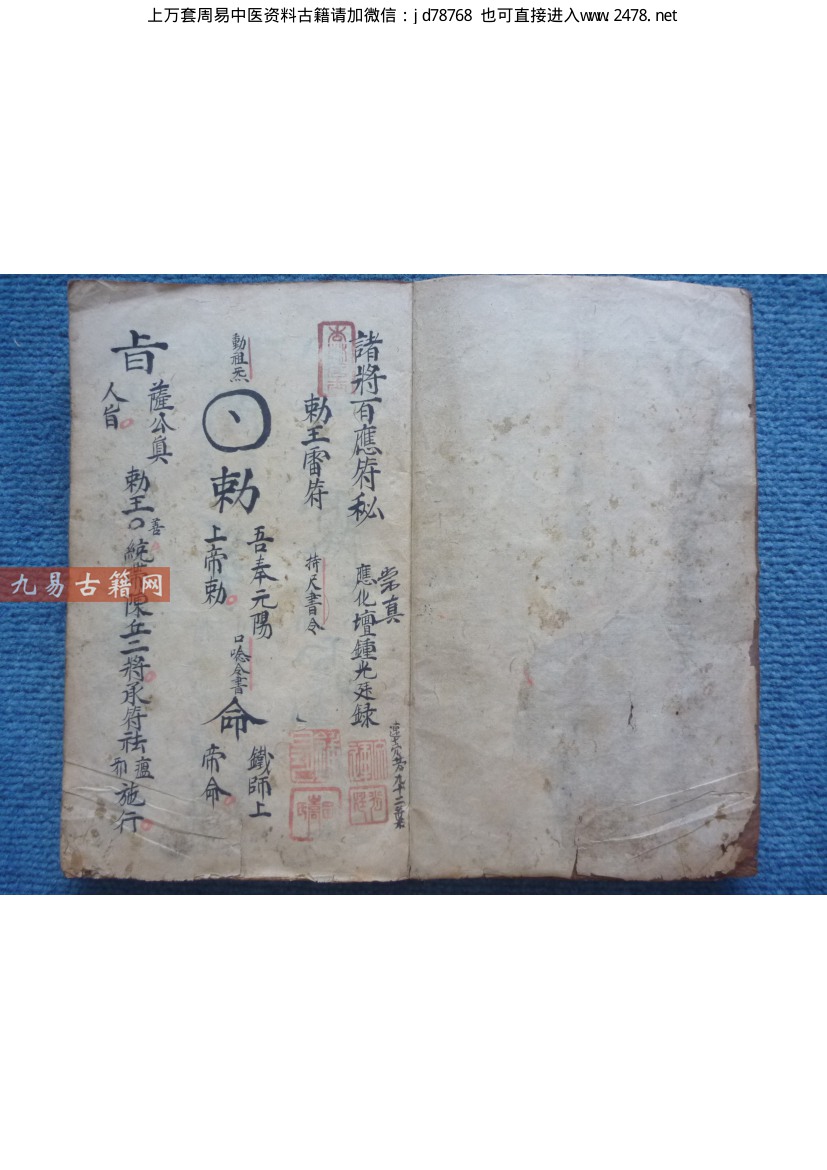 上万套周易中医资料古籍请加微信：jd78768 也可直接进入www.2478.net
諸將百應符秘
崇真
應化壇鍾光廷録
勅王雷符
持尺書令
動祖炁
勅
吾奉元陽
上帝勅
口唸仝書
命
鐵師上
帝命
旨
薩公真
人旨
勅王善
統 陳丘二將承符祛瘟
邪
施行
九易古籍网